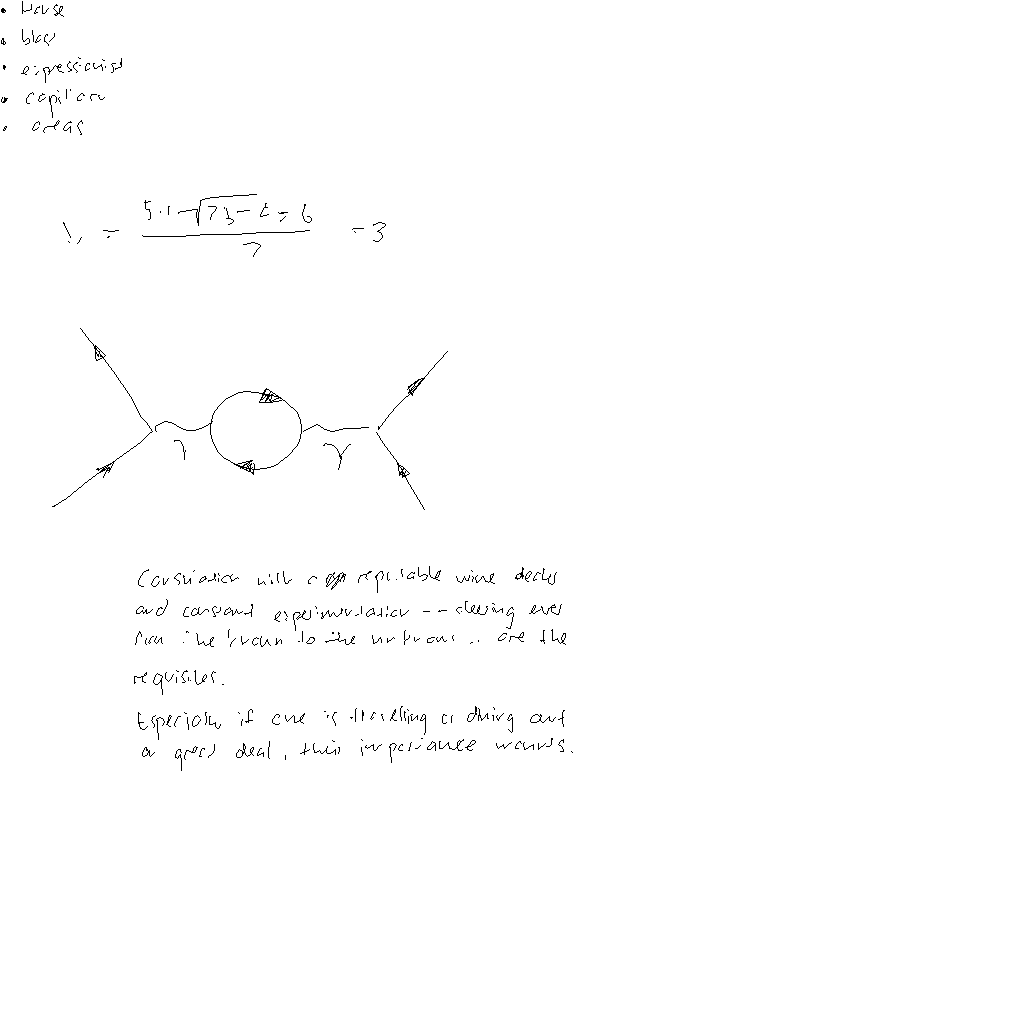 • House
• blog
• expressionist
• capillary
• areas
= 5·1 - √73 - 6
7
= 3
γ γ
Consultation with a reputable wine dealer
and constant experimentation -- steering ever
from the known to the unknown -- are the
requisites.
Especially if one is travelling or dining out
a great deal, their importance mounts.